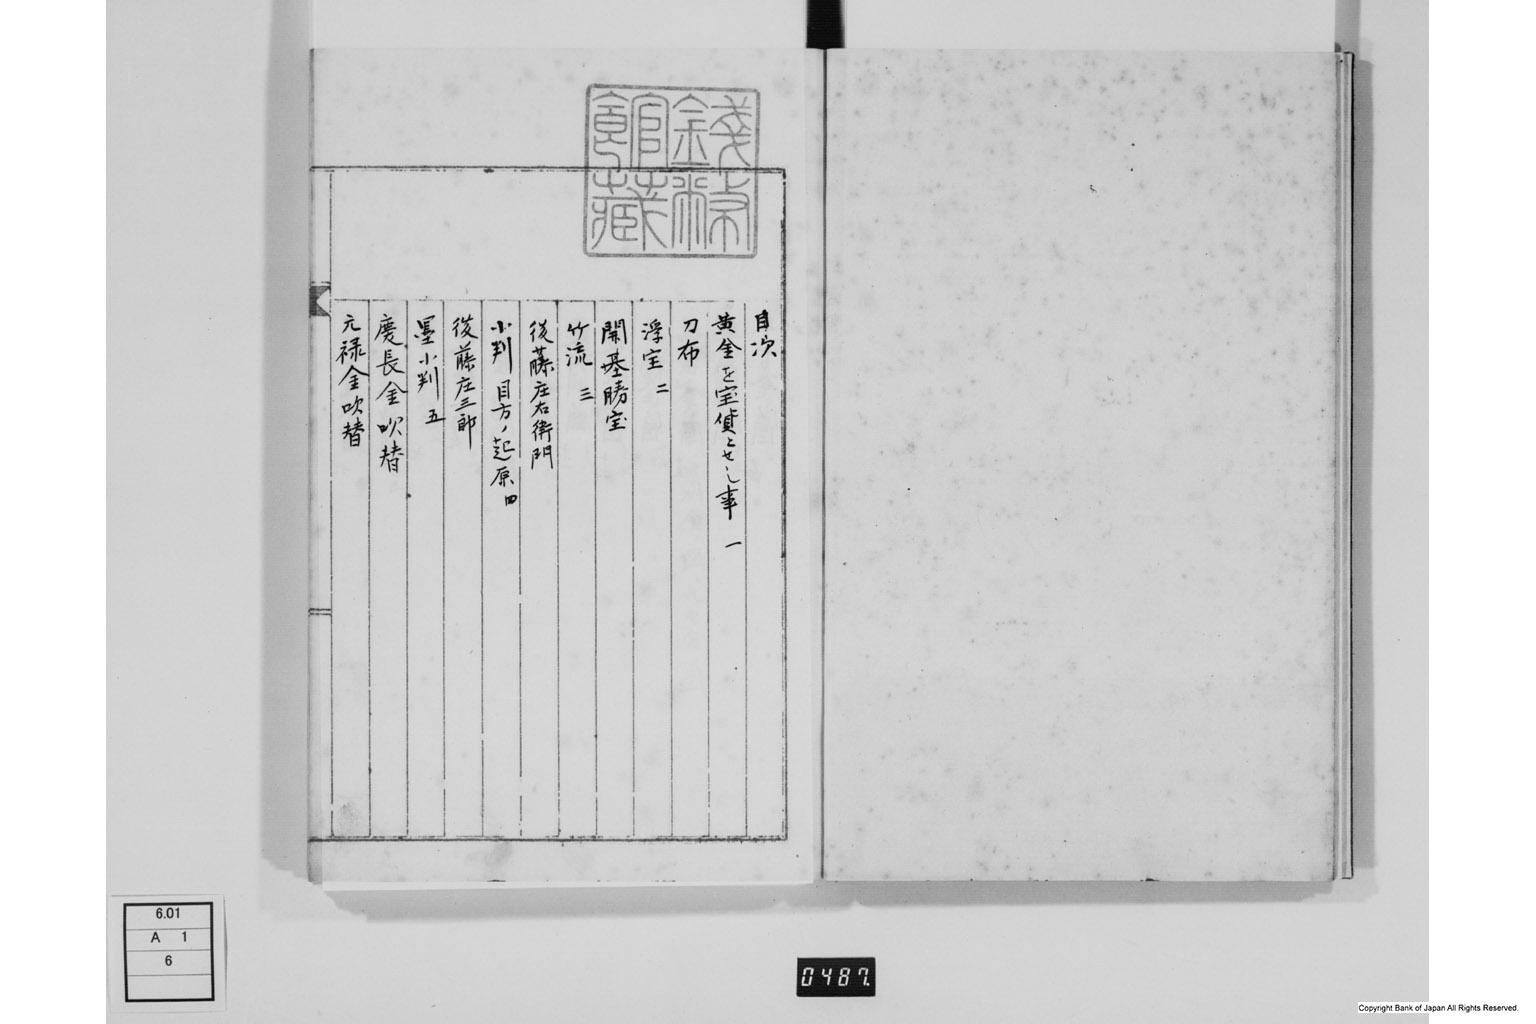 錢幣館藏
目次
黄金を宝貨とせし事 一
刀布
浮宝 二
開基勝宝
竹流 三
後藤庄右衛門
小判 目方ノ起原 四
後藤庄三郎
墨小判 五
慶長金吹替
元禄金吹替
6.01
A 1
6
0487.
Copyright Bank of Japan All Rights Reserved.